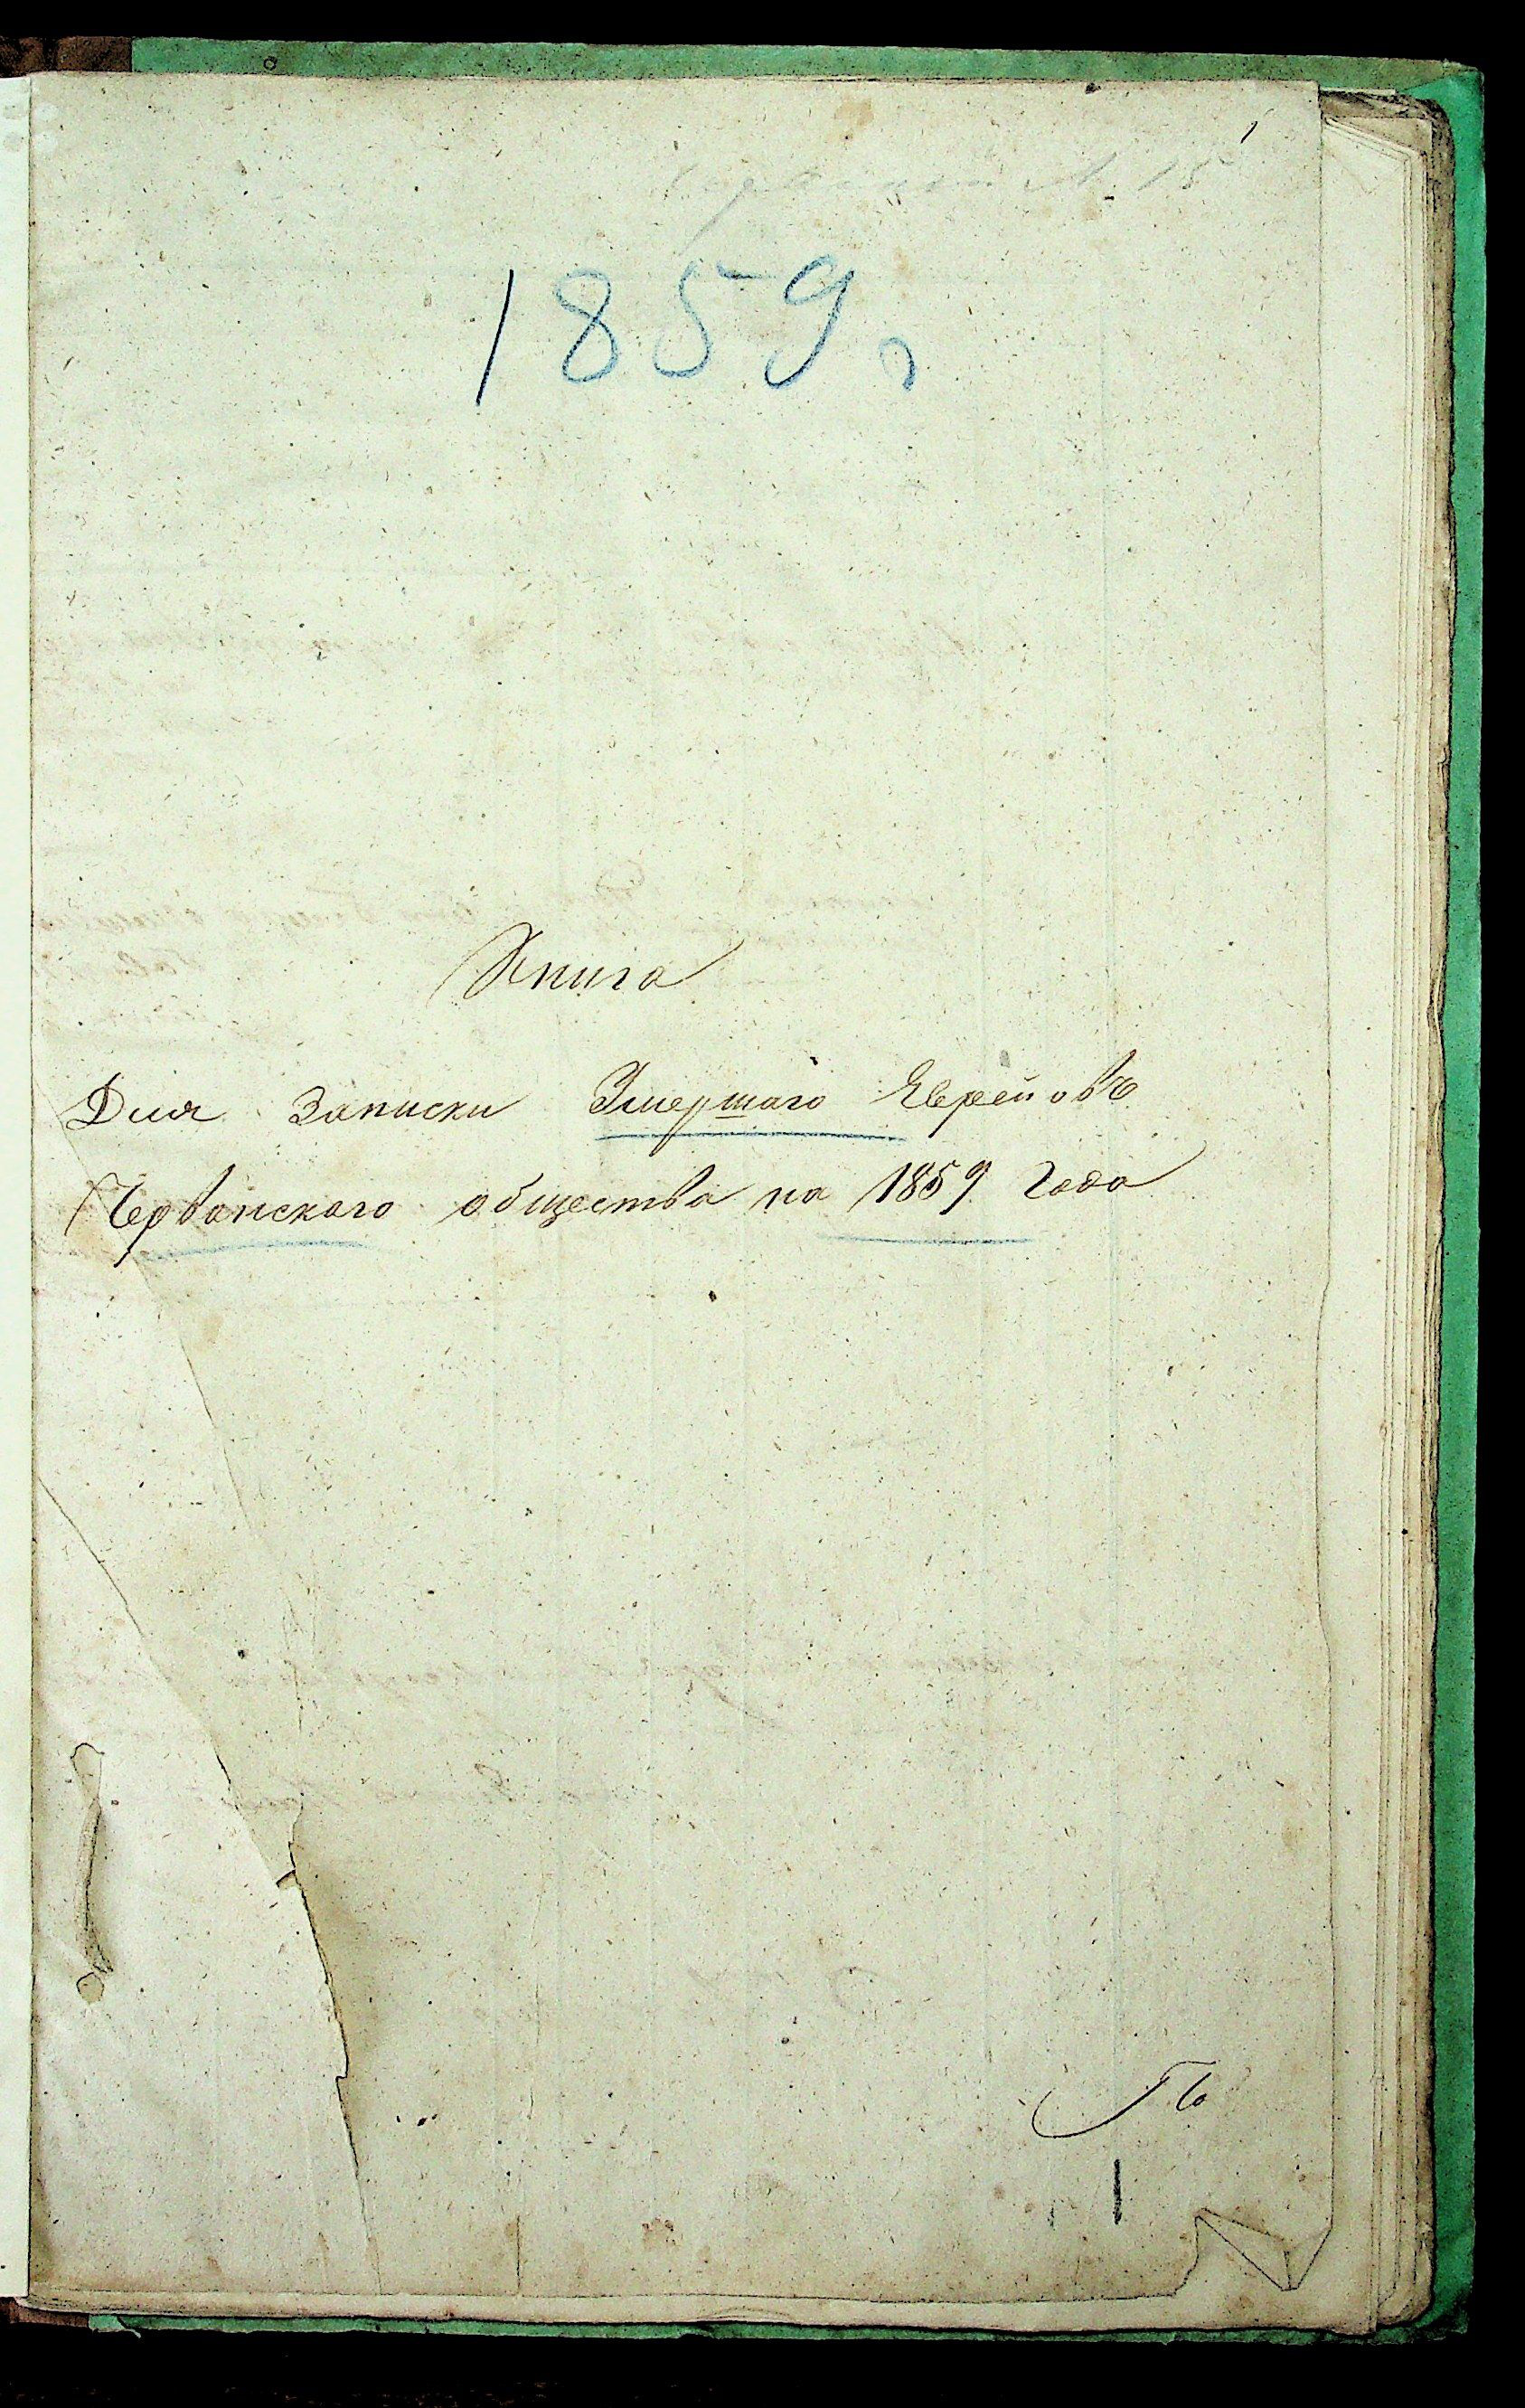 1
№ 15
1859 г
Книга
Для Записки Умершаго Евреиовъ
Чер​ванскаго общества на 1859 года
1